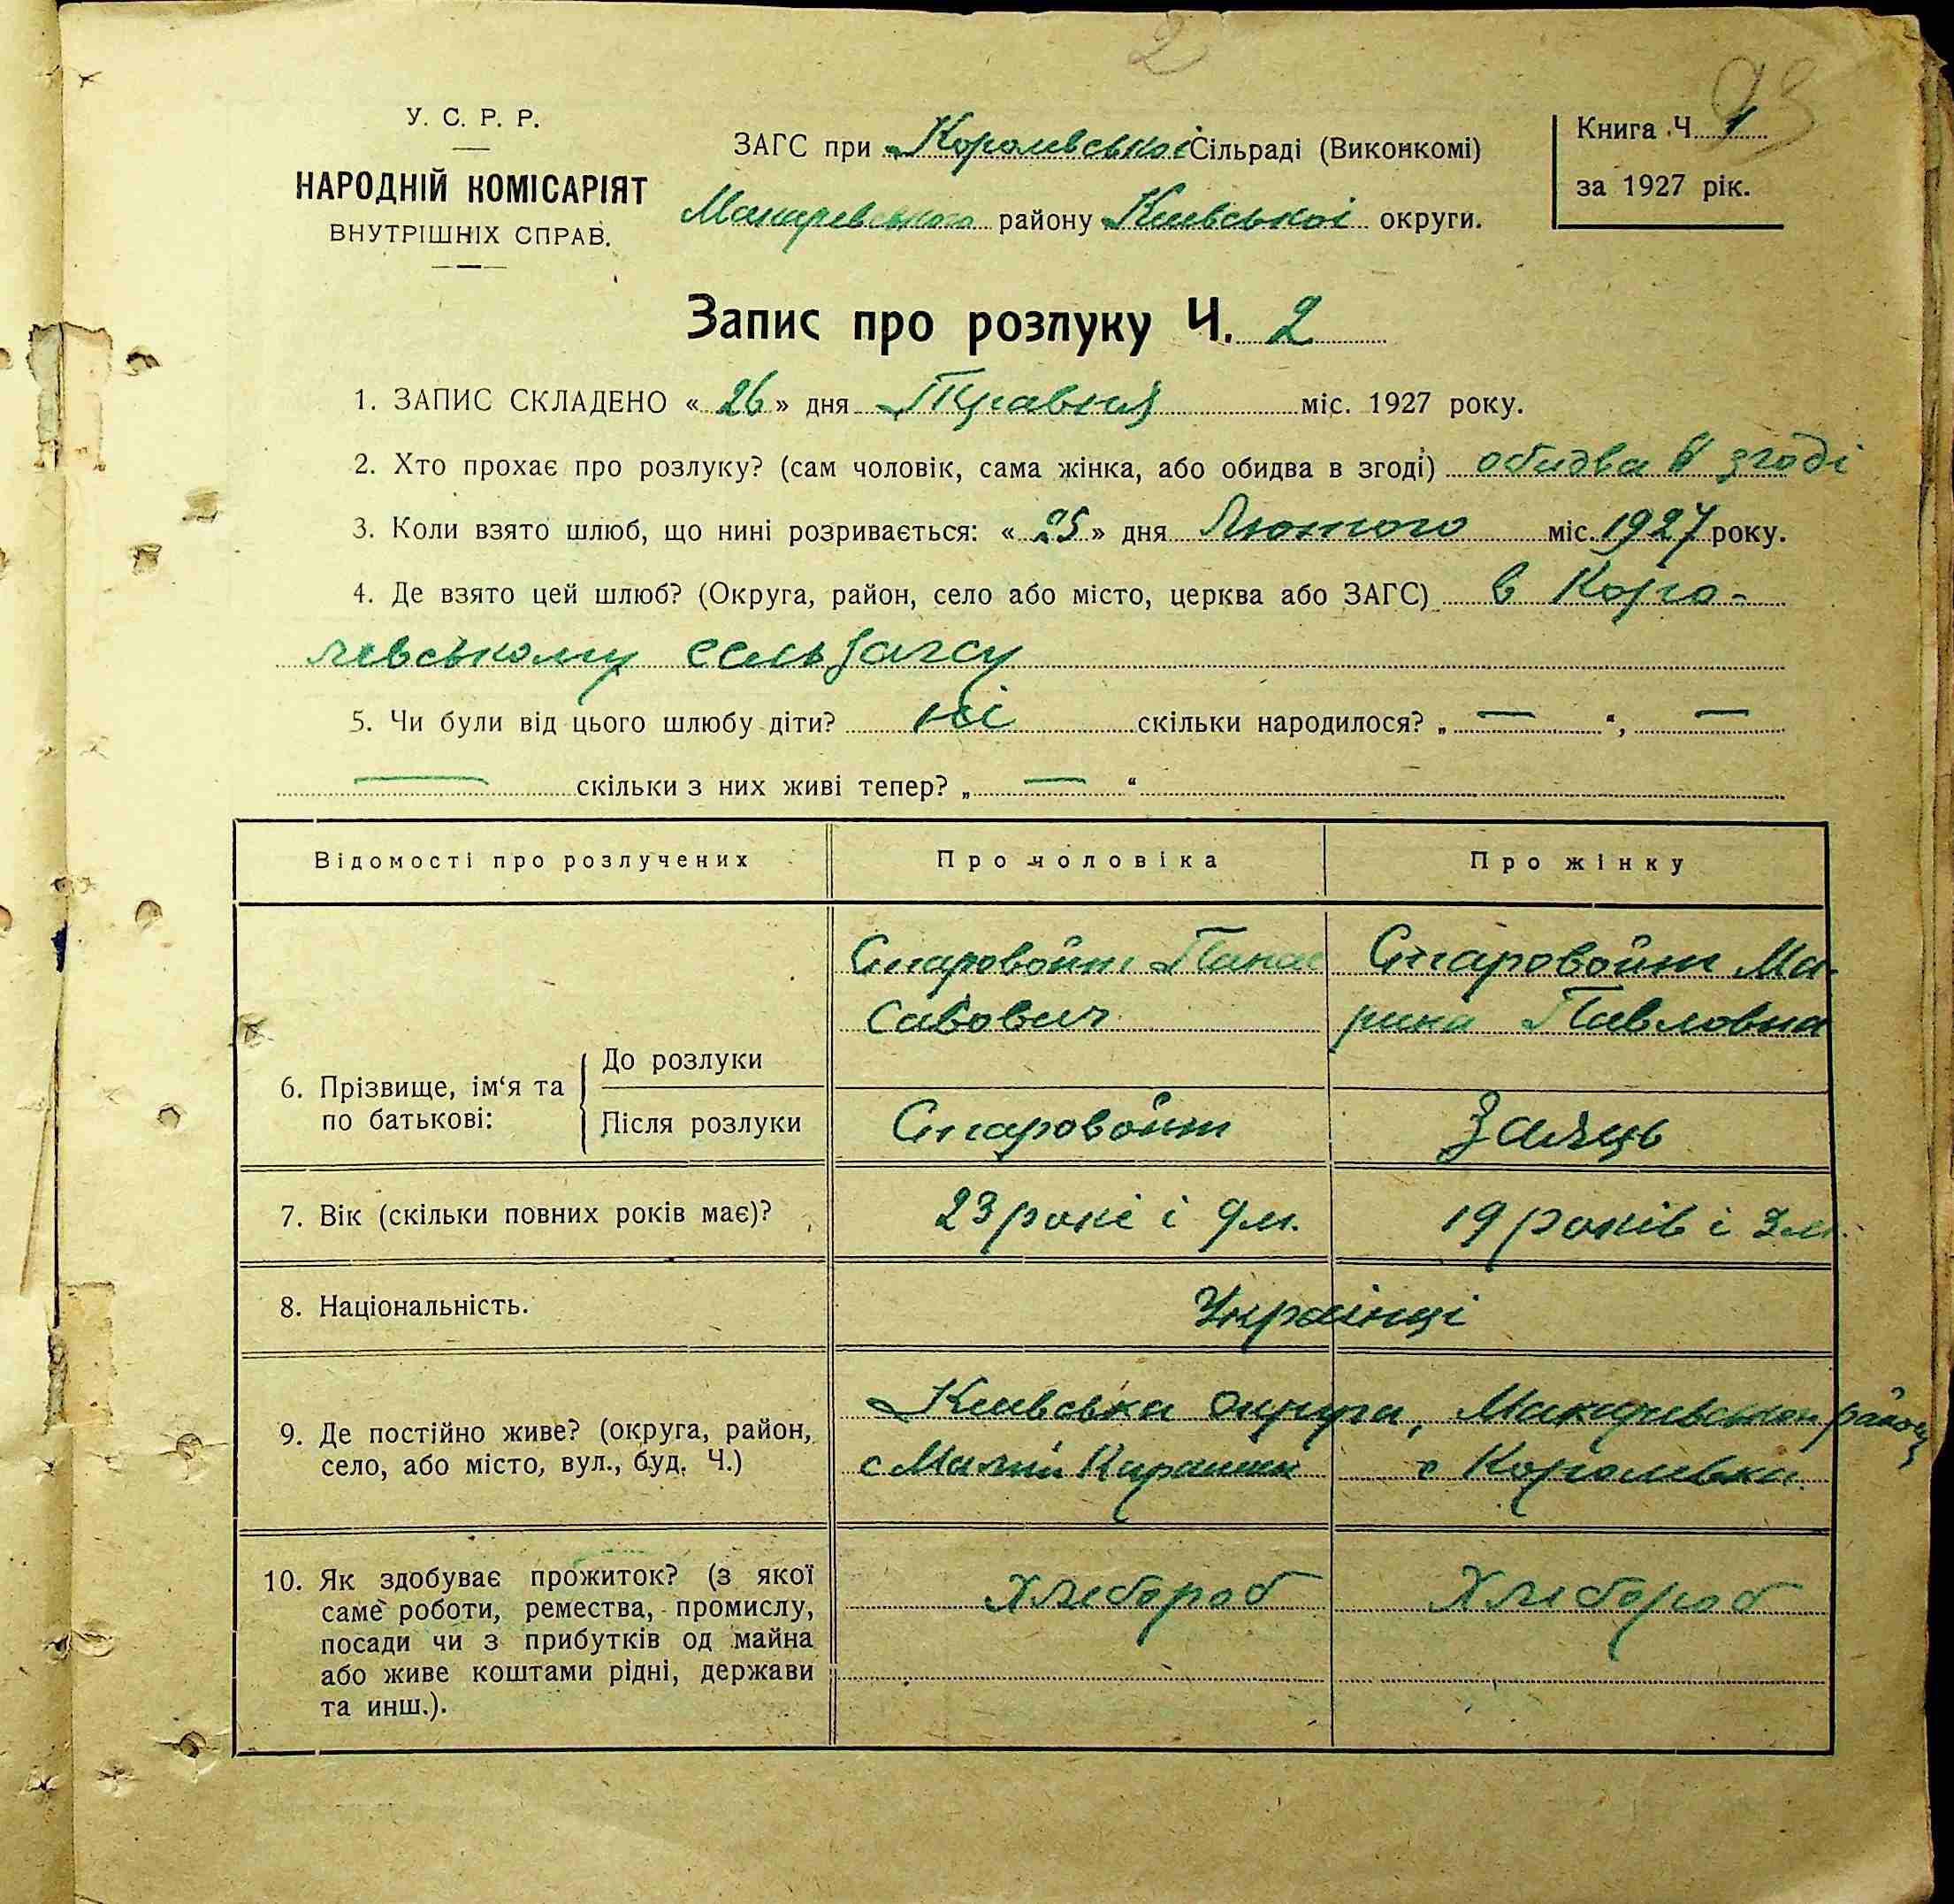 2
93
У. С. Р. Р.
НАРОДНІЙ КОМІСАРІЯТ
ВНУТРІШНІХ СПРАВ.
ЗАГС при Королевськоі Сільраді (Виконкомі)
Макаревського району Киівськоі округи.
Книга Ч. 1
за 1927 рік.
Запис про розлуку Ч. 2
1. ЗАПИС СКЛАДЕНО « 26 » дня Травня міс. 1927 року.
2. Хто прохає про розлуку? (сам чоловік, сама жінка, або обидва в згоді) обидва в згоді
3. Коли взято шлюб, що нині розривається: « 25 » дня Лютого міс. 1927 року.
4. Де взято цей шлюб? (Округа, район, село або місто, церква або ЗАГС) в Коро-
левському сельзагсу
5. Чи були від цього шлюбу діти? ні скільки народилося? „ — “, —
— скільки з них живі тепер? „ — “
Відомості про розлучених Про чоловіка Про жінку
Старовойт Панас Старовойт Ма-
Савович рина Павловна
6. Прізвище, ім‘я та по батькові: До розлуки
Після розлуки Старовойт Заяць
7. Вік (скільки повних років має)? 23 рокі і 9 м. 19 років і 3 м.
8. Національність. Украінці
9. Де постійно живе? (округа, район, Киівська округа, Макаревського району
село, або місто, вул., буд. Ч.) с Малий Карашин с Королевка
10. Як здобуває прожиток? (з якої Хлебороб Хлебороб
саме роботи, ремества, промислу,
посади чи з прибутків од майна
або живе коштами рідні, держави
та инш.).